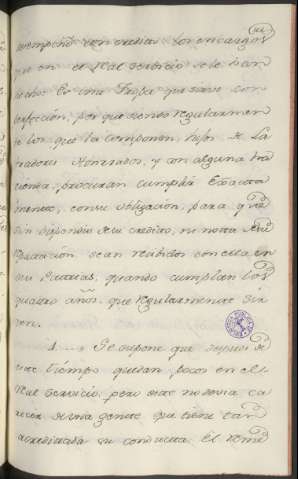 desempeñar con credito los encargos
que en el Real Servicio se le han
hecho. Es una Tropa que sirve con
perfeccion, por que siendo regularmen
te los que la componen, hijos de La
bradores Honrrados, y con alguna ha
cienda, procuran cumplir exacta
mente, con su obligacion, para q.e
sin dispendio de su credito, ni nota de su
reputacion sean recibidos con ella en
sus Patrias, quando cumplan los
quatro años, que regularmente sir
ven.
Se supone que despues de
este tiempo quedan pocos en el
Real Servicio, pero este no devia ca
recer de una gente que tiene tan
acreditada su conducta. El